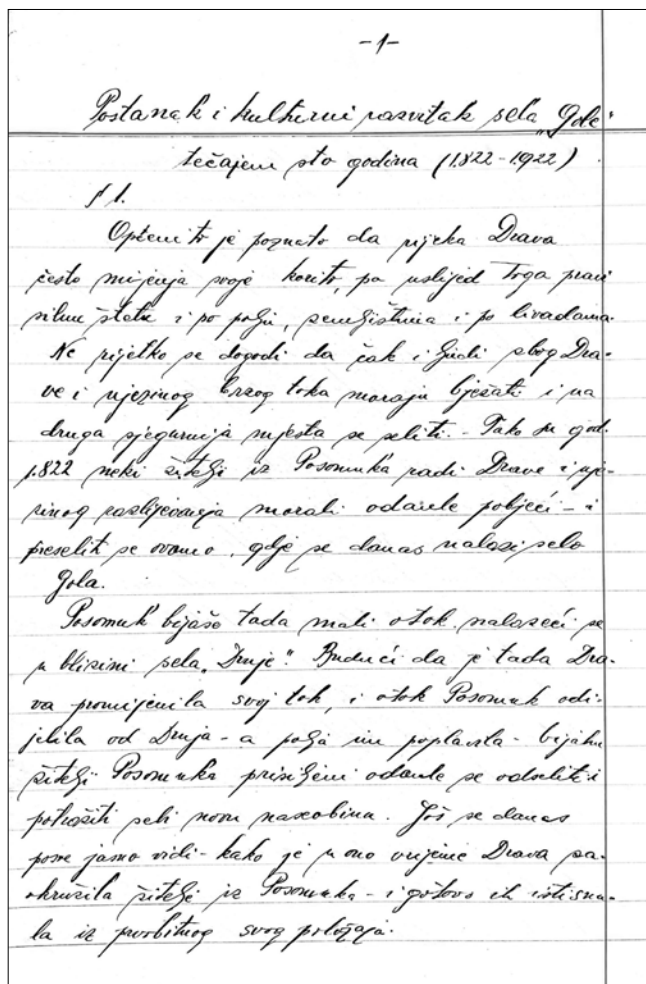 -1-
Postanak i kulturni razvitak sela „Gole"
tečajem sto godina (1822-1922)
§ 1.
Općenito je poznato da rijeka Drava
često mijenja svoje korito, pa uslijed toga pravi
silne štete i po polju, zemljištima i po livadama.
Ne rijetko se dogodi da čak i ljudi zbog Dra-
ve i njezinog brzog toka moraju bježati i na
druga sjegurnija mjesta se seliti. - Tako su god.
1822 neki žitelji iz Posomuka radi Drave i nje-
zinog razlijevanja morali odavle pobjeći - i
preselit se ovamo, gdje se danas nalazi selo
Gola.
Posomuk bijaše tada mali otok nalazeći se
u blizini sela „Drnje". Budući da je tada Dra-
va promijenila svoj tok, i otok Posomuk odi-
jelila od Drnja - a polja im poplavila - bijahu
žitelji Posomuka prisiljeni odavle se odseliti i
potražiti sebi novu naseobinu. Još se danas
posve jasno vidi - kako je u ono vrijeme Drava za-
okružila žitelje iz Posomuka - i gotovo ih istisnu-
la iz prvobitnog svog položaja.